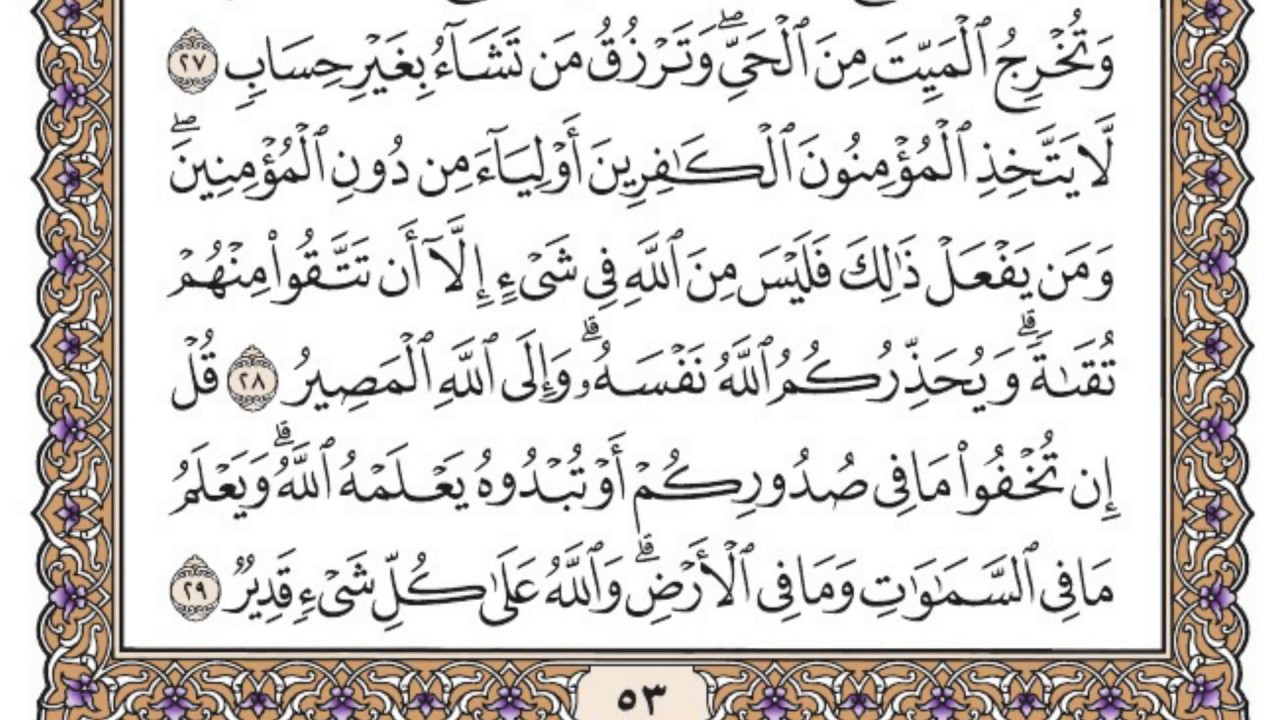 وَتُخْرِجُ ٱلْمَيِّتَ مِنَ ٱلْحَيِّۖ وَتَرْزُقُ مَن تَشَآءُ بِغَيْرِ حِسَابٖ ٢٧
لَّا يَتَّخِذِ ٱلْمُؤْمِنُونَ ٱلْكَٰفِرِينَ أَوْلِيَآءَ مِن دُونِ ٱلْمُؤْمِنِينَۖ
وَمَن يَفْعَلْ ذَٰلِكَ فَلَيْسَ مِنَ ٱللَّهِ فِي شَيْءٍ إِلَّآ أَن تَتَّقُوا۟ مِنْهُمْ
تُقَىٰةٗۗ وَيُحَذِّرُكُمُ ٱللَّهُ نَفْسَهُۥۗ وَإِلَى ٱللَّهِ ٱلْمَصِيرُ ٢٨ قُلْ
إِن تُخْفُوا۟ مَا فِي صُدُورِكُمْ أَوْ تُبْدُوهُ يَعْلَمْهُ ٱللَّهُۗ وَيَعْلَمُ
مَا فِي ٱلسَّمَٰوَٰتِ وَمَا فِي ٱلْأَرْضِۗ وَٱللَّهُ عَلَىٰ كُلِّ شَيْءٖ قَدِيرٞ ٢٩
٥٣